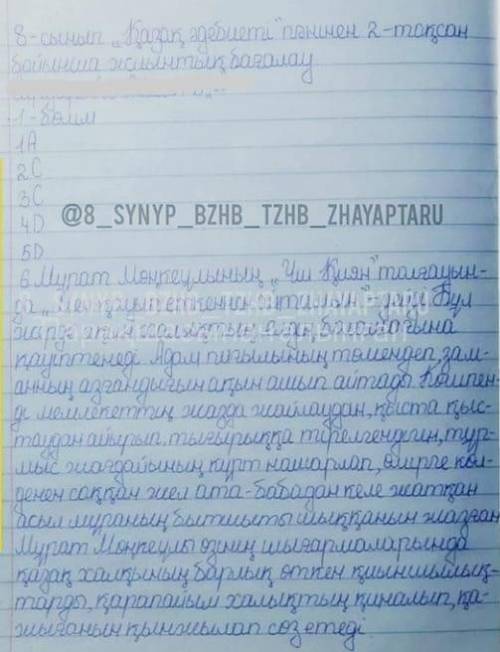 8-сынып „Қазақ әдебиеті" пәнінен 2-тоқсан
бойынша жиынтық бағалау
1-бөлім
1A
2C
3C
@8_SYNYP_BZHB_TZHB_ZHAYAPTARU
4D
5D
6 Мұрат Мөңкеұлының „Үш Қиян" толғауын-
да „Мен қауіп еткеннен айтамын" дейді. Бұл
жерде ақын халықтың алдағы болашағына
қауіптенеді. Адам пиғылының төмендеп, зам-
анның азғандығын ақын ашып айтады. Көшпен-
ді мемлекеттің жазда жайлаудан, қыста қыс-
таудан айырып, тығырыққа тірелгендігін, тұр-
мыс жағдайының күрт нашарлап, өмірге көл-
денең соққан жел ата-бабадан келе жатқан
асыл мұраның быт-шыты шыққанын жазған.
Мұрат Мөңкеұлы өзінің шығармаларында
қазақ халқының барлық өткен қиыншылық-
тарды, қарапайым халықтың қиналып, қа-
жығанын қынжылап сөз етеді.